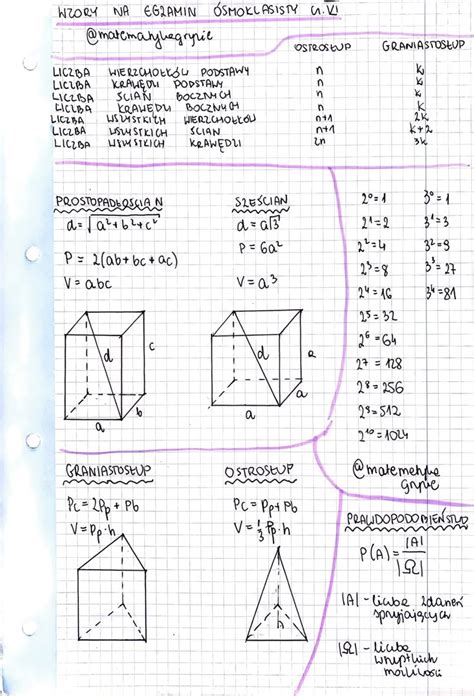 WZORY NA EGZAMIN ÓSMOKLASISTY cz. VI
@matematykagrypie
OSTROSŁUP GRANIASTOSŁUP
LICZBA WIERZCHOŁKÓW PODSTAWY n k
LICZBA KRAWĘDZI PODSTAWY n k
LICZBA ŚCIAN BOCZNYCH n k
LICZBA KRAWĘDZI BOCZNYCH n k
LICZBA WSZYSTKICH WIERZCHOŁKÓW n+1 2k
LICZBA WSZYSTKICH ŚCIAN n+1 k+2
LICZBA WSZYSTKICH KRAWĘDZI 2n 3k
PROSTOPADŁOŚCIAN
d = √a²+b²+c²
P = 2(ab+bc+ac)
V = abc
d
c
b
a
SZEŚCIAN
d = a√3
P = 6a²
V = a³
d
a
a
a
2⁰=1 3⁰=1
2¹=2 3¹=3
2²=4 3²=9
2³=8 3³=27
2⁴=16 3⁴=81
2⁵=32
2⁶=64
2⁷=128
2⁸=256
2⁹=512
2¹⁰=1024
@matematyka
grypie
GRANIASTOSŁUP
Pc = 2Pp + Pb
V = Pp·h
OSTROSŁUP
Pc = Pp+Pb
V = 1/3 Pp·h
PRAWDOPODOBIEŃSTWO
P(A) = |A|/|Ω|
|A| - liczba zdarzeń
sprzyjających
|Ω| - liczba
wszystkich
możliwości